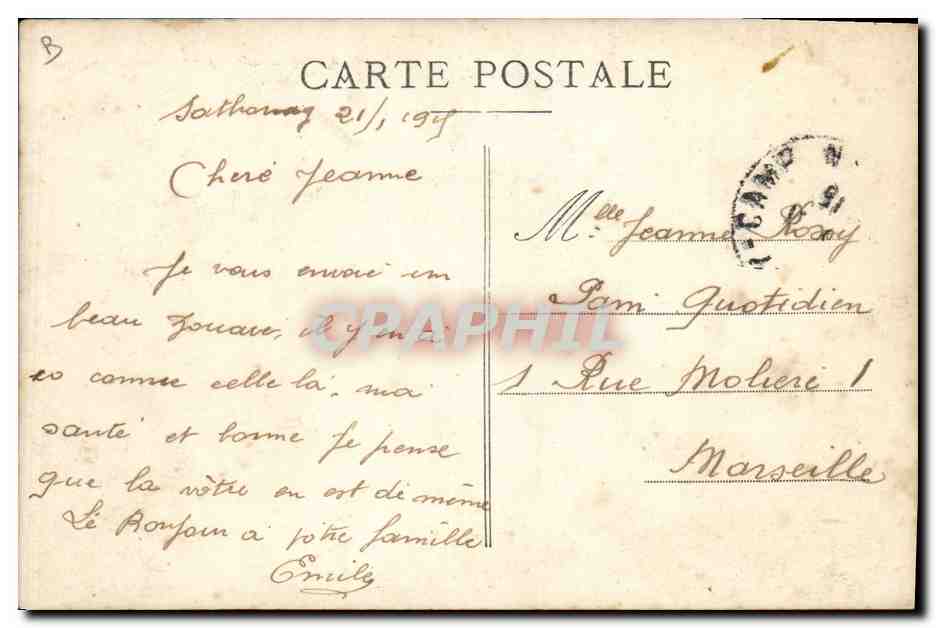 B
CARTE POSTALE
Sathonay 21/1 1915
Cheré Jeanne
Je vous envoie un
beau zouave, il y en a
20 comme celle là. ma
santé et bonne Je pense
que la vôtre en est de même
Lé Bonjour a votre famille
Emile
Melle Jeanne Rosoy
Pam Quotidien
1 Rue Molieré 1
Marseille
CAMP
15
CPAPHIL